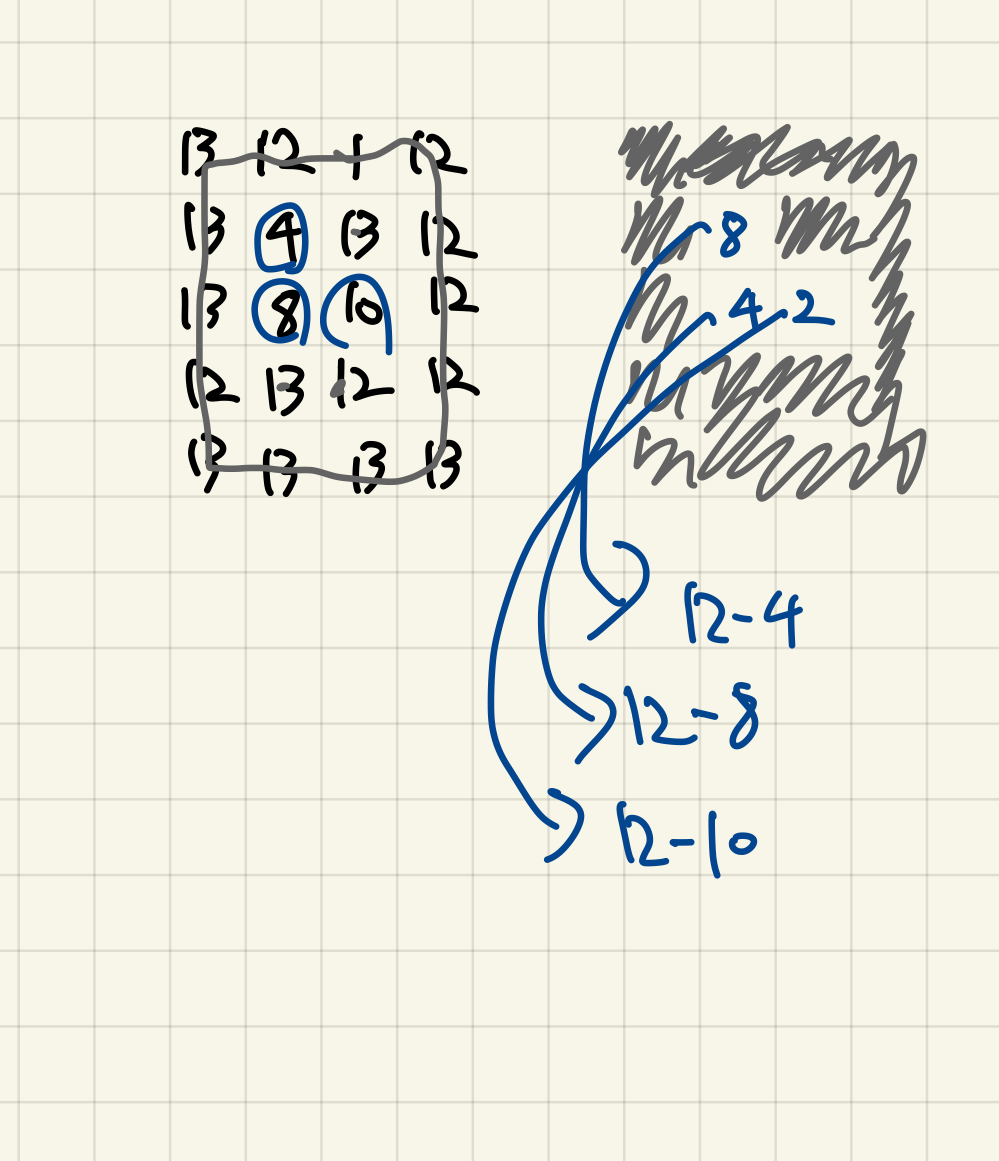 13 12 1 12
13 4 13 12 8
13 8 10 12 4 2
12 13 12 12
13 13 13 13
12-4
12-8
12-10